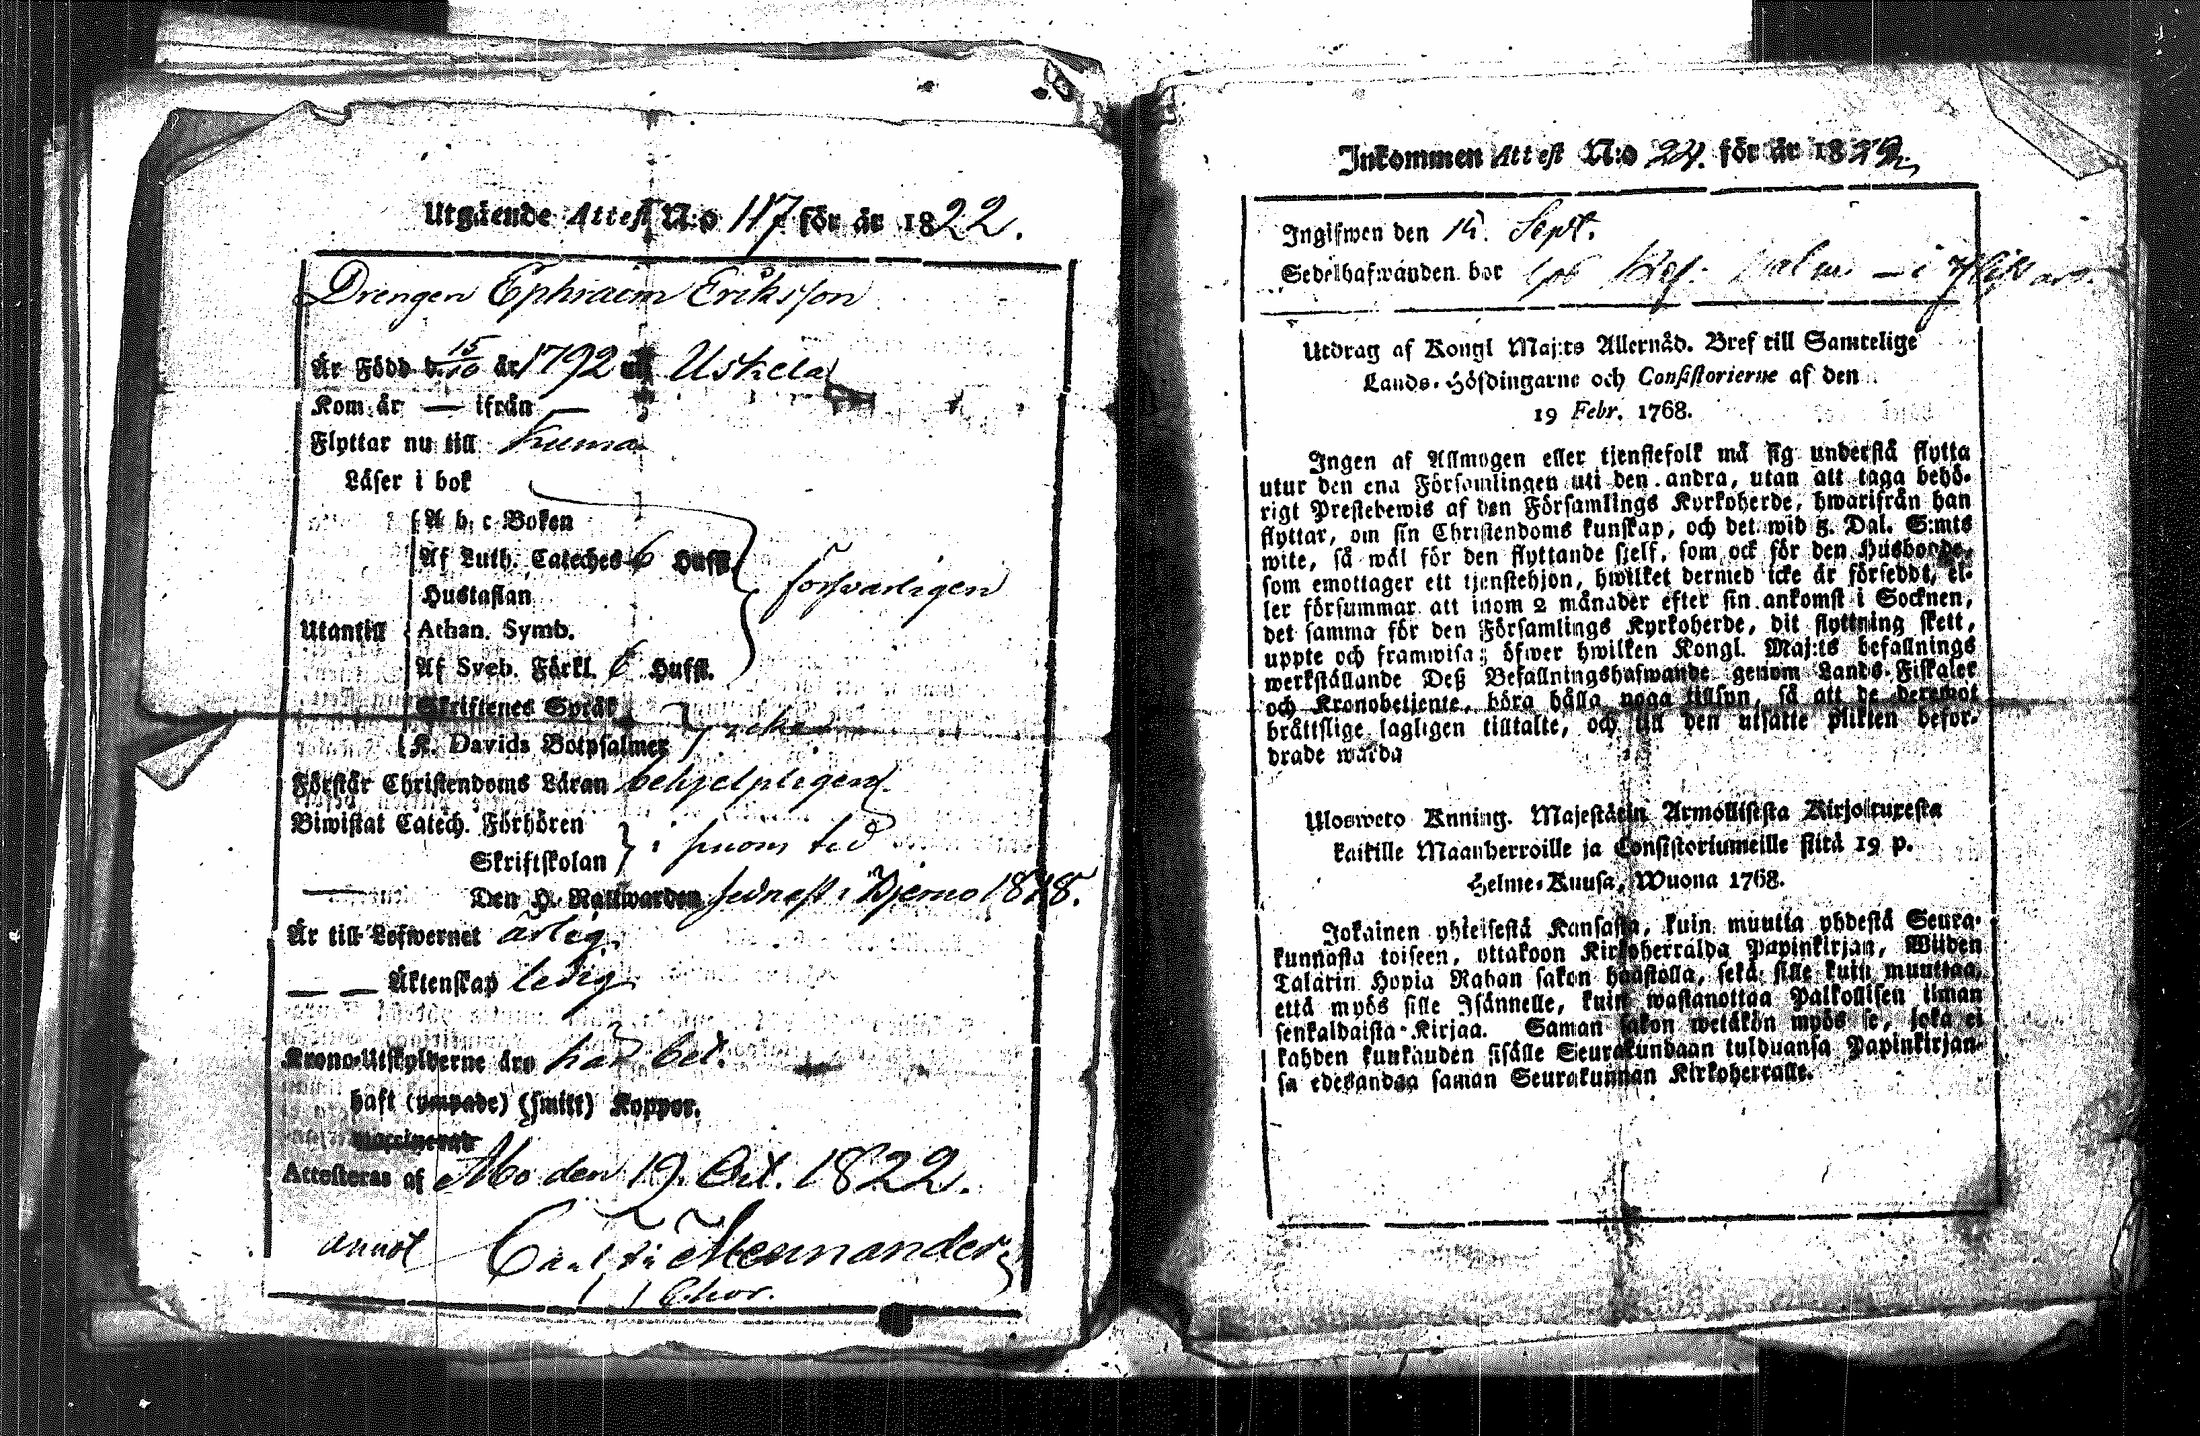 Utgående Attest N:o 117 för år 1822.
Drengen Ephraim Eriksson
Är Född d. 15/10 år 1792 uti Uskela
Kom år — ifrån —
Flyttar nu till
Läser i bok
A b c Boken
Af Luth. Cateches 6 Hufst.
Hustaflan
försvarligen
Utantill Athan. Symb.
Af Sveb. Förkl. 6 Hufst.
Skriftenes Språk
K. Davids Botpsalmer
Förstår Christendoms Läran behjelpligen.
Biwistat Catech. Förhören
Skriftskolan i sinom tid
Den H. Nattwarden sednast i Bjerno
Är till Lefwernet ärlig.
— — Äktenskap ledig
Krono-Utskylderne äro har bet.
haft (ympade) (smitt) Koppor.
Attesteras af Åbo den 19. Oct. 1822.
annot Carl Mennander
Inkommen Attest N:o 24. för år 18
Ingifwen den Sept.
Sedelhafwanden bor
Utdrag af Kongl Maj:ts Allernåd. Bref till Samtelige
Lands-Höfdingarne och Consistorierne af den
19 Febr. 1768.
Ingen af Allmogen eller tjenstefolk må sig understå flytta
utur den ena Församlingen uti den andra, utan att taga behö-
rigt Prestebewis af den Församlings Kyrkoherde, hwarifrån han
flyttar, om sin Christendoms kunskap, och det wid 3. Dal. S:mts
wite, så wäl för den flyttande sielf, som ock för den Husbonde,
som emottager ett tjenstehjon, hwilket dermed icke är försedt, el-
ler försummar att inom 2 månader efter sin ankomst i Socknen,
det samma för den Församlings Kyrkoherde, dit flyttning skett,
uppte och framwisa; öfwer hwilken Kongl. Maj:ts befallnings
werkställande Deß Befallningshafwande genom Lands-Fiskaler
och Kronobetjente, böra hålla noga tillsyn, så att de deremot
bråttslige lagligen tilltalte, och till den utsatte plikten befor-
drade warda
Ulosweto Knning. Majestätin Armollisesta Kirjoituxesta
kaikille Maanherroille ja Consistoriumeille siitä 19 p.
Helme-Kuusa, Wuona 1768.
Jokainen yhteisestä Kansasta, kuin muutta yhdestä Seura-
kunnasta toiseen, ottakoon Kirkoherralda Papinkirjan, Wiiden
Talarin Hopia Rahan sakon haastolla, sekä sille kuin muuttaa,
että myös sille Isännelle, kuin wastanottaa Palkollisen ilman
senkaldaista Kirjaa. Saman sakon wetäkön myös se, joka ei
kahden kuukauden sisälle Seurakundaan tulduansa Papinkirjan-
sa edesandaa saman Seurakunnan Kirkoherralle.